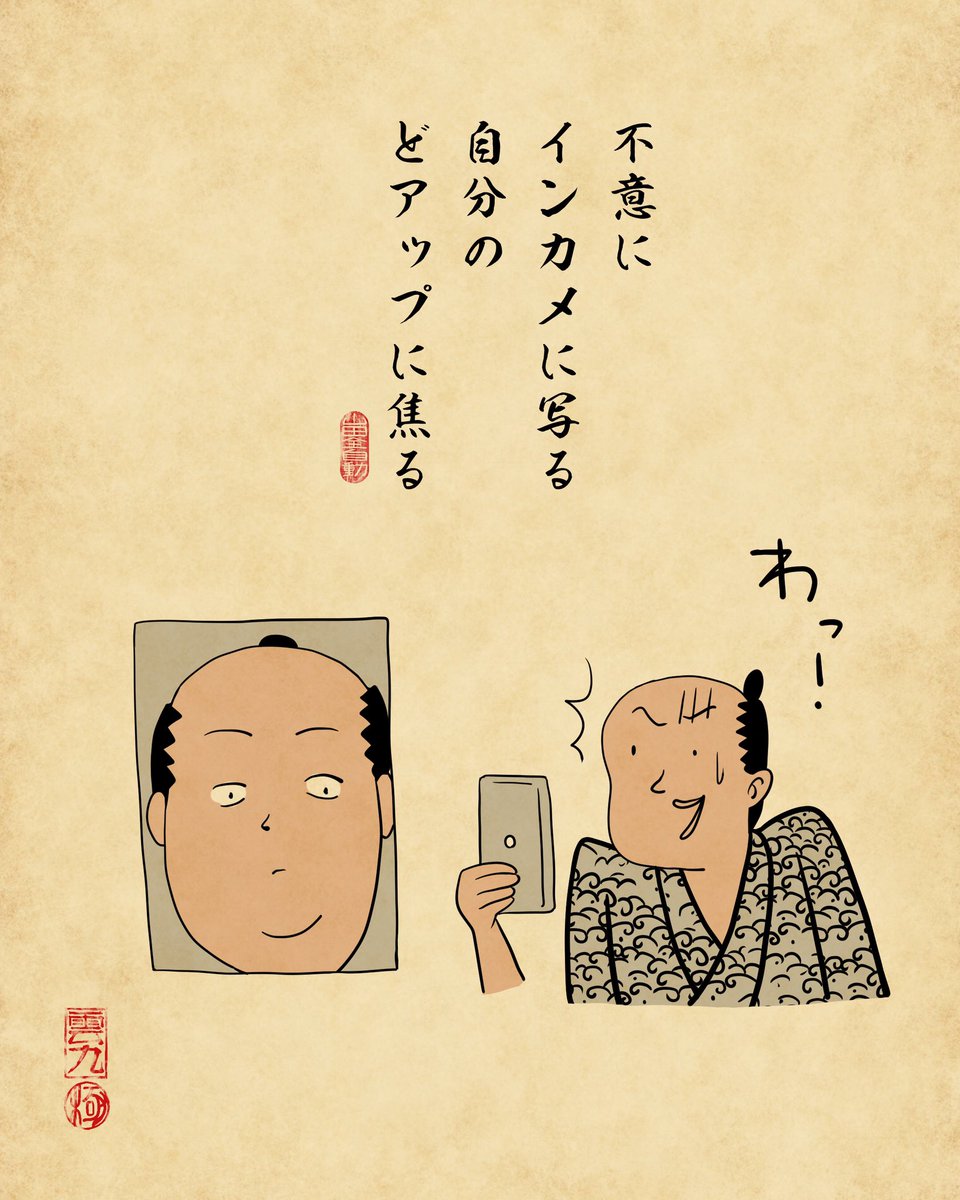 不意に
インカメに写る
自分の
どアップに焦る
わっ!